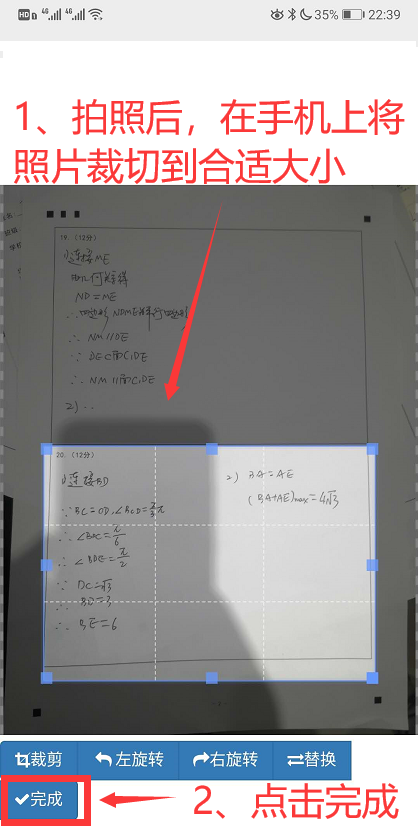 HD 4G 4G 35% 22:39
1、拍照后，在手机上将
照片裁切到合适大小
19.（12分）
1)连接ME
由几何关系得
ND=ME
∴四边形NDME为平行四边形
∴ NM//DE
∵ DE⊂面C₁DE
∴ NM//面C₁DE
2)··
20.（12分）
1)连接BD
∵BC=CD,∠BCD=2/3π
∴∠BDC=π/6
∴∠BDE=π/2
∵ DC=√3
∴ BD=3
∴ BE=6
2) BA=AE
(BA+AE)max=4√3
裁剪 左旋转 右旋转 替换
完成
2、点击完成